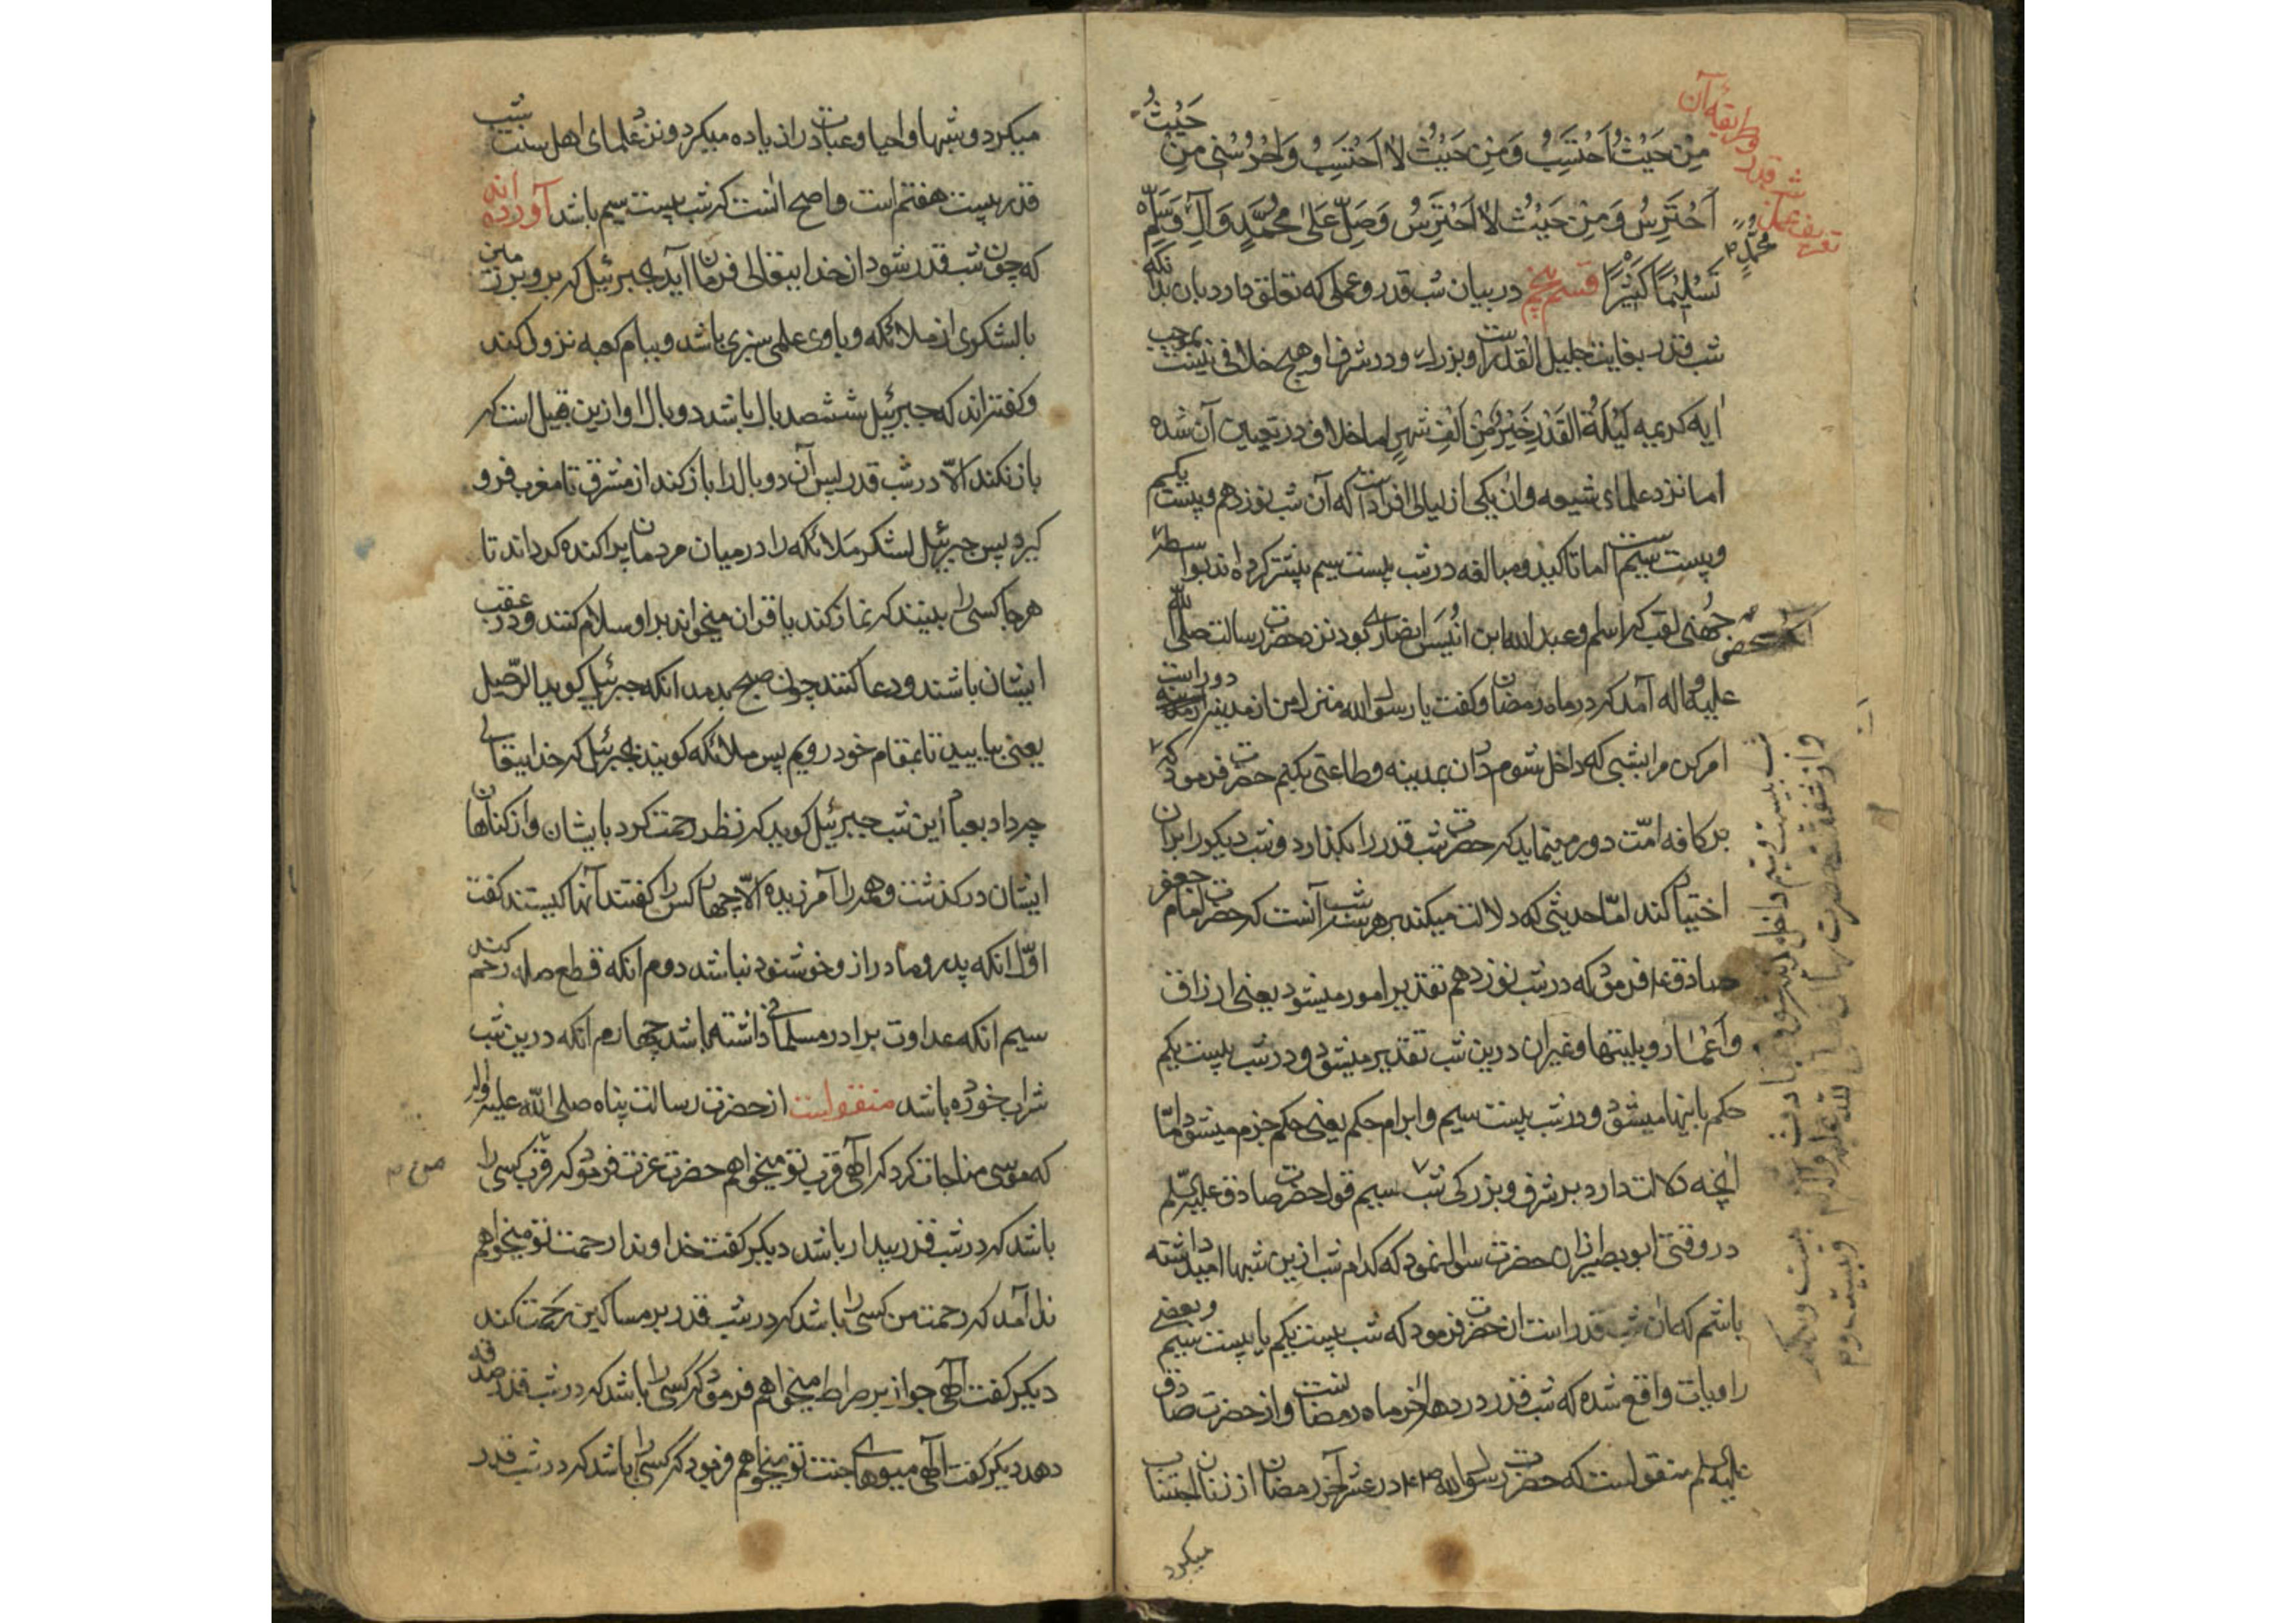 من حیث احتسب و من حیث لا احتسب و احرسنی من حیث
احترس و من حیث لا احترس و صل علی محمد و آله و سلم
تسلیما کثیرا قسم پنجم در بیان شب قدر و عملی که تعلق دارد بان بدانکه
شب قدر بغایت جلیل القدرست و بزرك و در شرف او هیچ خلافی نیست بموجب
ایه کریمه لیلة القدر خیر من الف شهر اما خلاف در تعیین آن شده
اما نزد علمای شیعه و ان یکی از لیالی افرادست که آن شب نوزدهم و بیست یکم
و بیست سیم است اما تاکید و مبالغه در شب بیست سیم بیشتر کرده اند بواسطه
جهنی لقب که اسلم و عبدالله ابن انیس انصاری بود نزد حضرت رسالت صلی الله
علیه و اله آمد که در ماه رمضان و کفت یا رسول الله منزل من از مدینه دور است
امر کن مرا بشبی که داخل شوم در ان بمدینه و طاعتی بکنم حضرت فرمود که
بر کافه امت دور مینماید که حضرت شب قدر را بکذارد و شب دیکر را بران
اختیار کند اما حدیثی که دلالت میکند بر هر سه شب آنست که حضرت امام جعفر
صادق ع فرمود که در شب نوزدهم تقدیر امور میشود یعنی ارزاق
و اعمار و بلیتها و غیر ان درین شب تقدیر میشود و در شب بیست یکم
حکم باینها میشود و در شب بیست سیم و ابرام حکم یعنی حکم جزم میشود و اما
آنچه دلالت دارد بر شرف و بزرکی شب سیم قول حضرت صادق علیه السلم
در وقتی ابو بصیر از ان حضرت سوال نمود که کدام شب ازین شبها امید داشته
باشم که مان شب قدر است ان حضرت فرمود که شب بیست یکم یا بیست سیم و بعضی
راویات واقع شده که شب قدر در دهه آخر ماه رمضانست و از حضرت صادق
علیه السلم منقولست که حضرت رسول الله در عشر آخر رمضان از زنان اجتناب
میکرد
شب قدر و طریقه آن
میکرد و شبها و احیا و عبادت را زیاده میکرد و نزد علمای اهل سنت شب
قدر بیست هفتم است و اصح انست که شب بیست سیم باشد آورده اند
که چون شب قدر شود از خدایتعالی فرمان آید بجبرئیل که برو بر زمین
با لشکری از ملائکه و با وی علمی سبزی باشد و ببام کعبه نزول کند
و کفته اند که جبرئیل ششصد بال باشد دو بال او ازین قبیل است که
باز نکند الا در شب قدر پس آن دو بال را باز کند از مشرق تا مغرب فرو
کیرد پس جبرئیل لشکر ملائکه را در میان مردمان پراکنده کرداند تا
هر جا کسی را ببینند که نماز کند یا قران میخواند بر او سلام کنند و در عقب
ایشان باشند و دعا کنند چون صبح بدمد انکه جبرئیل کوید الرحیل
یعنی بیایید تا بمقام خود رویم پس ملائکه کویند بجبرئیل که خدایتعالی
چه داد بعباد این شب جبرئیل کوید که نظر رحمت کرد بایشان و از کناهان
ایشان در کذشت و همه را آمرزیده الا چهار کس را کفتند آنها کیستند کفت
اول انکه پدر و مادر از و خوشنود نباشد دوم انکه قطع صله رحم کند
سیم انکه عداوت برادر مسلمانی داشته باشد چهارم انکه درین شب
شراب خورده باشد منقولست از حضرت رسالت پناه صلی الله علیه و اله
که موسی مناجات کرد که الهی قرب تو میخواهم حضرت عزت فرمود که قرب کسی را
باشد که در شب قدر بیدار باشد دیکر کفت خداوندا رحمت تو میخواهم
ندا آمد که رحمت من کسی را باشد که در شب قدر بر مساکین رحمت کند
دیکر کفت الهی جواز بر صراط میخواهم فرمود که کسی را باشد که در شب قدر صدقه
دهد دیکر کفت الهی میوهای جنت تو میخواهم فرمود که کسی را باشد که در شب قدر